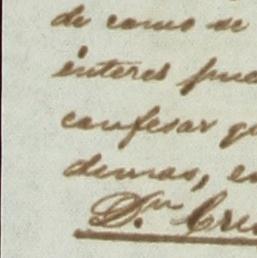 de como se
interes pue
confesar q
demas, e
D.ⁿ Cri